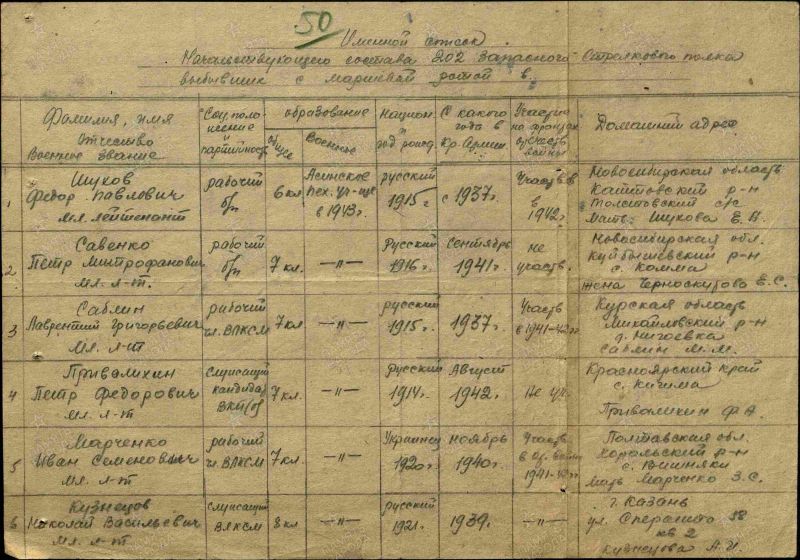 50
Именной список
Начальствующего состава 202 запасного стрелкового полка
выбывших с маршевой ротой в
Фамилия, имя
Отчество
Военное звание
Соц. положение и партийность
образование
общее
Военное
Национ. и год рожд.
С какого года в Кр. Армии
Участие на фронтах отечеств. войны
Домашний адрес
1
Шуков
Федор Павлович
мл. лейтенант
рабочий
б/п
6 кл
Асинское
пех. уч-ще
в 1943 г.
русский
1915 г.
с 1937 г.
Участв. в
в
1942 г.
Новосибирская область
р-н
Толстовский с/с
Мать: Шукова Е. Н.
2
Савенко
Петр Митрофанович
мл. л-т.
рабочий
б/п
7 кл.
—"—
Русский
1916 г.
Сентябрь
1941 г.
не
участв.
Новосибирская обл.
Куйбышевский р-н
с. Камма
жена Черноскутова Е. С.
3
Саблин
Лаврентий Григорьевич
мл. л-т
рабочий
чл. ВЛКСМ
7 кл
—"—
русский
1915 г.
1937 г.
Участв
в 1941-42 гг
Курская область
Михайловский р-н
Саблин М. М.
4
Привалихин
Петр Федорович
мл. л-т
служащий
кандидат
ВКП(б)
7 кл.
—"—
Русский
1914 г.
Август
1942 г.
Не уч.
Красноярский край
с. Кигима
Привалихин Ф. А.
5
Марченко
Иван Семенович
мл. л-т
рабочий
чл. ВЛКСМ
7 кл.
—"—
Украинец
1920 г.
ноябрь
1940 г.
Участв
в от. войне
Полтавская обл.
Хорольский р-н
с. Вишняки
мать Марченко З. С.
6
Кузнецов
Николай Васильевич
мл. л-т
служащий
ВЛКСМ
8 кл
—"—
русский
1921 г.
1939 г.
—"—
г. Казань
кв 2
Кузнецова А. И.